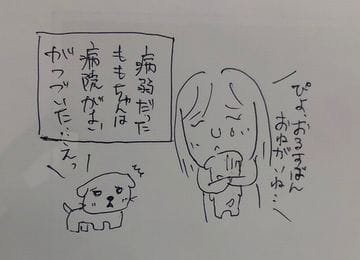 病弱だった
ももちゃんは
病院がよい
がつづいた…
えっ
ぴよ、おるすばん
おねがいね…